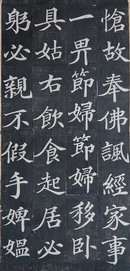 愴故奉佛諷經家事
一畀節婦節婦移卧
具姑右飲食起居必
躬必親不假手婢媼